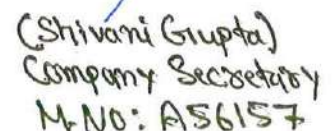 (Shivani Gupta)
Company Secretary
M.NO: A56157